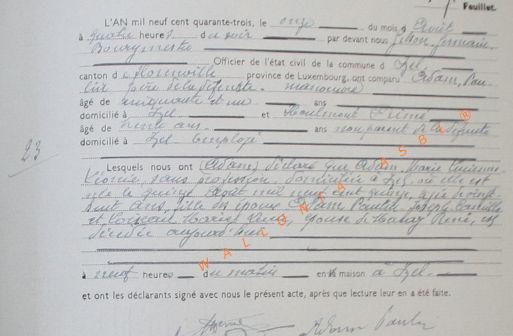 Feuillet.
L'AN mil neuf cent quarante-trois, le onze du mois d'Août
à quatre heures du soir par devant nous
Bourgmestre
Officier de l'état civil de la commune d'Izel
canton de Florenville province de Luxembourg, ont comparu Adam, Pau-
lin père de la défunte. manoeuvre
âgé de cinquante et un ans
domicilié à Izel et
âgé de trente ans ans non parent de la défunte
domicilié à Izel employé
23
Lesquels nous ont (Adam) déclaré que Adam, Marie
sans profession domiciliée à Izel, où elle est
née le quinze Août mil neuf cent quinze, âgée de vingt
ans, fille des époux Adam Paulin Joseph Camille
et épouse de René, est
décédée aujourd'hui
à neuf heures du matin en sa maison à Izel
et ont les déclarants signé avec nous le présent acte, après que lecture leur en a été faite.
Adam Paulin
WALCONIA ASBL ®